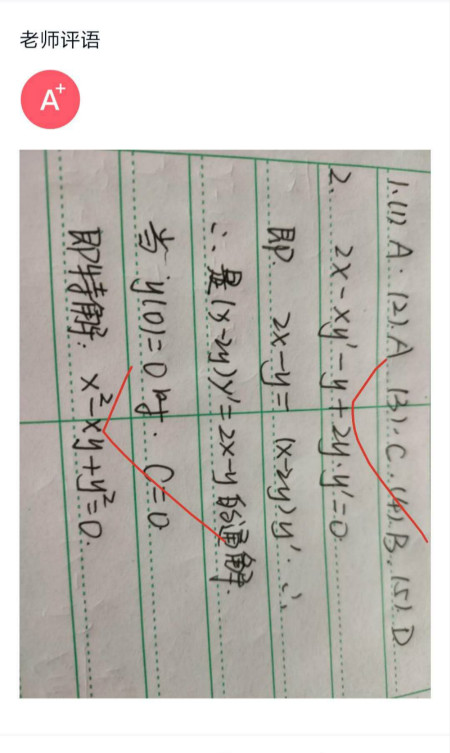 老师评语
A+
1.(1) A. (2).A (3).C. (4).B. (5).D
2. 2x-xy'-y+2y·y'=0
即. 2x-y=(x-2y)y'. ∴
∴ 是(x-2y)y'=2x-y的通解.
当 y(0)=0时. C=0
即特解: x²-xy+y²=0.